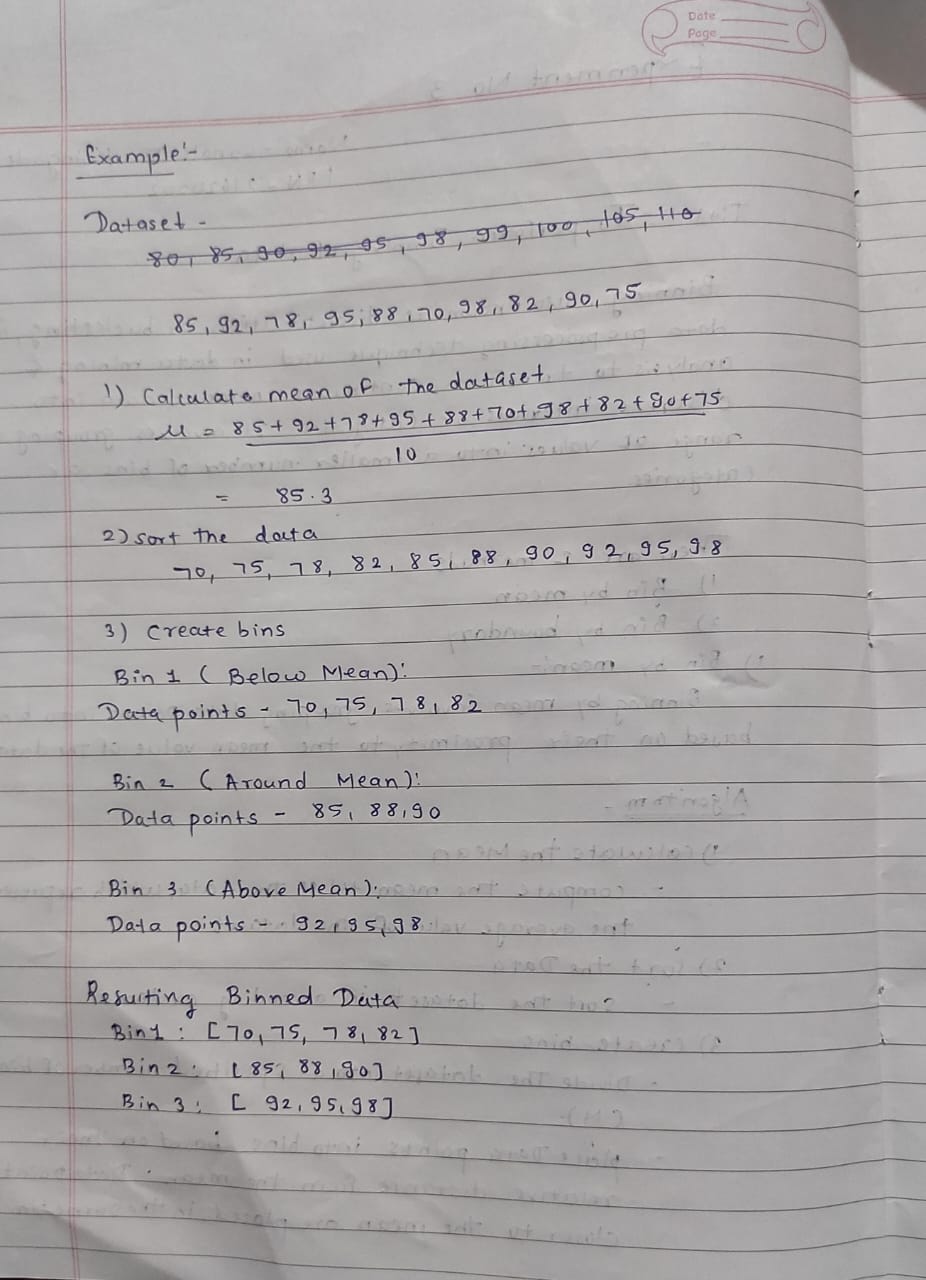 Date
Page
Example:-
Dataset -
80, 85, 90, 92, 95, 98, 99, 100, 105, 110
85, 92, 78, 95, 88, 70, 98, 82, 90, 75
1) Calculate mean of the dataset
μ = 85+92+78+95+88+70+98+82+90+75
10
= 85.3
2) sort the data
70, 75, 78, 82, 85, 88, 90, 92, 95, 98
3) Create bins
Bin 1 ( Below Mean):
Data points - 70, 75, 78, 82
Bin 2 ( Around Mean):
Data points - 85, 88, 90
Bin 3 (Above Mean):
Data points - 92, 95, 98
Resulting Binned Data
Bin 1 : [70, 75, 78, 82]
Bin 2 : [85, 88, 90]
Bin 3 : [ 92, 95, 98]